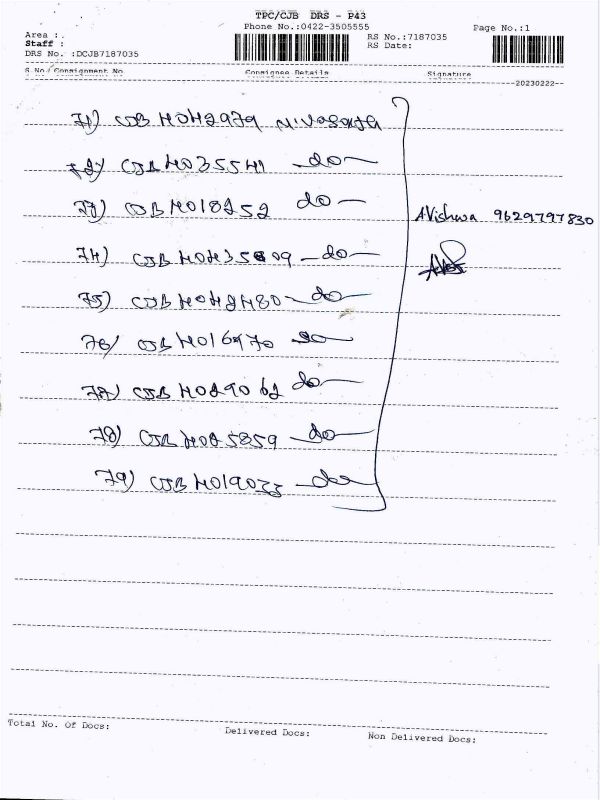 TPC/CJB DRS - P43
Phone No.:0422-3505555
Page No.:1
Area :.
Staff :
DRS No. :DCJB7187035
RS No.:7187035
RS Date:
S No/ Consignment No
Consignee Details
Signature
20230222
71) CJB M042979
72) CJB M035541 -do-
73) CJB M018252 do-
74) CJB M0435809 -do-
75) CJB M042480 -do-
76) CJB M016970 do-
77) CJB M029062 do-
78) CJB M025859 -do-
79) CJB M019033 -do-
A Vishwa 9629797830
Total No. Of Docs:
Delivered Docs:
Non Delivered Docs: